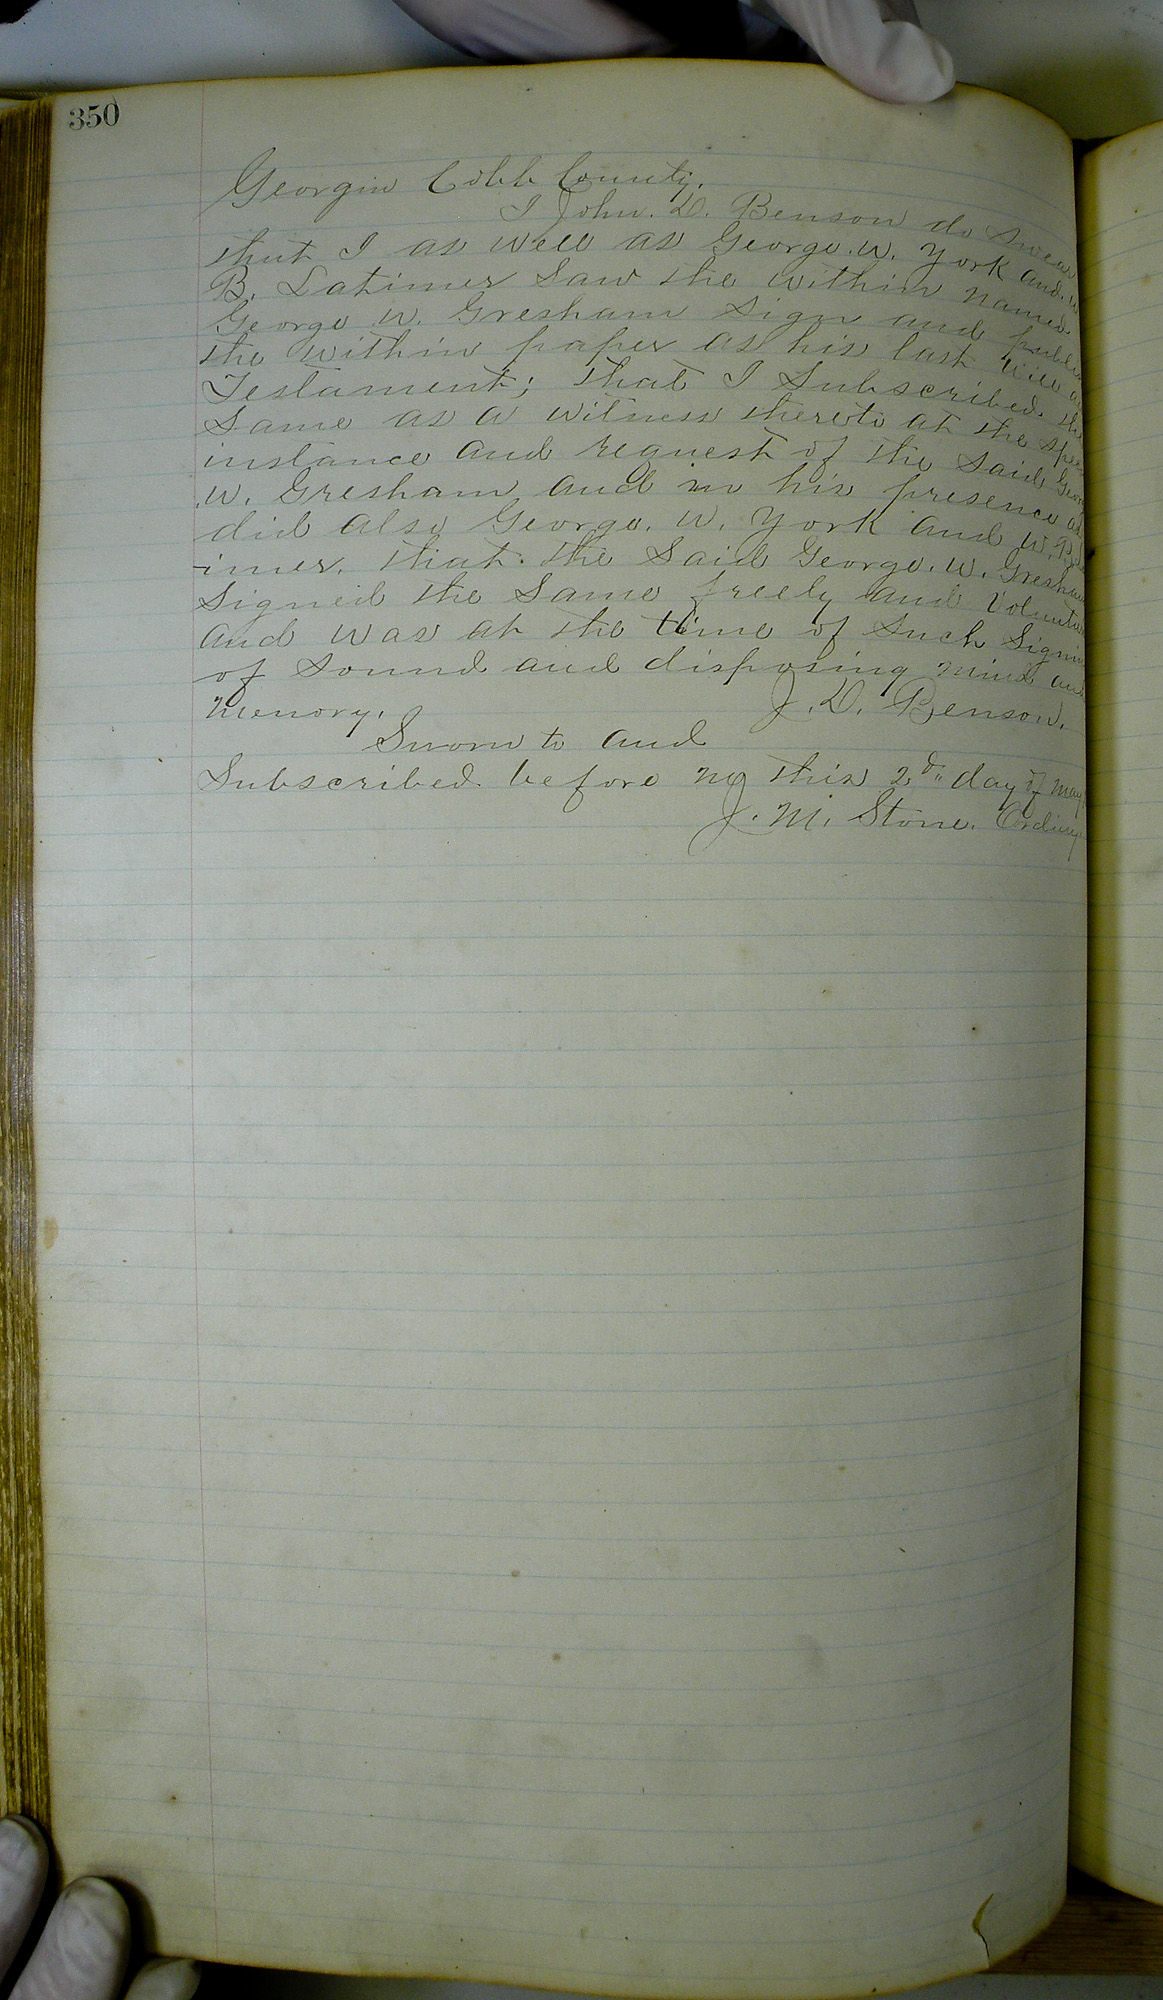 350
Georgia Cobb County.
I John. D. Benson do swear
that I as well as George. W. York and. W
B. Latimer Saw the within named
George W. Gresham Sign and publis
the within paper as his last will a
Testament; that I Subscribed. the
Same as a witness thereto at the spe
instance and request of the Said Geor
W. Gresham and in his presence as
did also George. W. York and W. B.
imer. that. the Said George. W. Gresham
Signed the Same freely and Volunta
and was at the time of Such Signi
of Sound and disposing mind and
memory. J. D. Benson.
Sworn to and
Subscribed. before me this 2d day of May
J. M. Stone. Ordinary